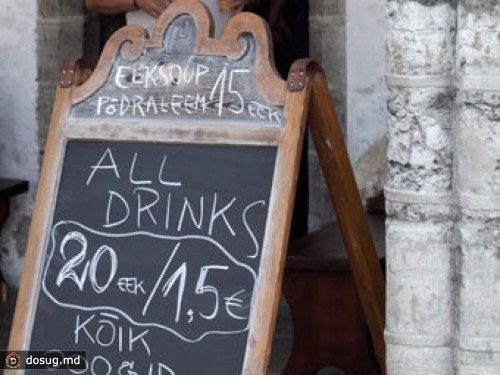 ELKSOUP 15 EEK
PÕDRALEEM
ALL
DRINKS
20 EEK / 1,5 €
KÕIK
dosug.md